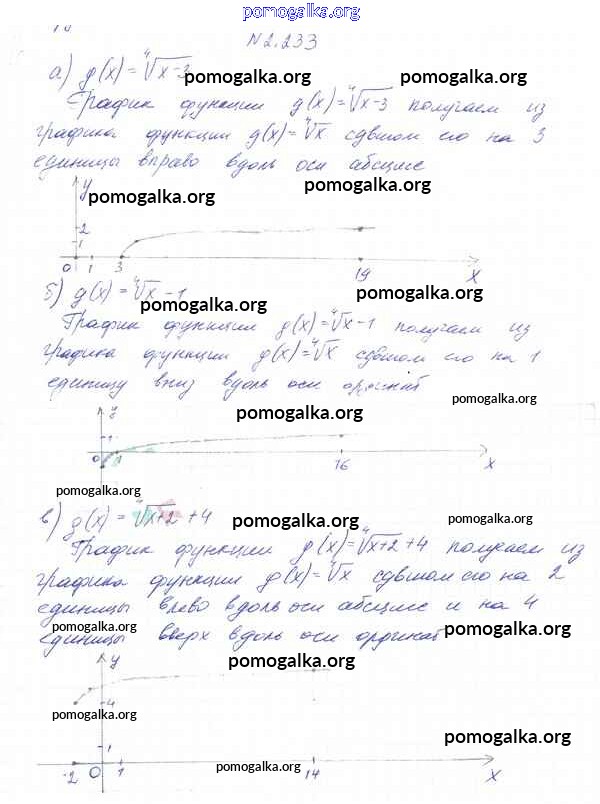 pomogalka.org
N 2.233
а) g(x) = ⁴√x-3 pomogalka.org pomogalka.org
График функции g(x)=⁴√x-3 получаем из
графика функции g(x)=⁴√x сдвигом его на 3
единицы вправо вдоль оси абсцисс
pomogalka.org pomogalka.org
y
2
1
0 1 3 19 x
б) g(x) = ⁴√x -1
pomogalka.org pomogalka.org
График функции g(x)=⁴√x-1 получаем из
графика функции g(x)=⁴√x сдвигом его на 1
единицу вниз вдоль оси ординат
pomogalka.org
pomogalka.org
y
1
0 1 16 x
pomogalka.org
в) g(x) = ⁴√x+2 + 4 pomogalka.org pomogalka.org
График функции g(x)=⁴√x+2 + 4 получаем из
графика функции g(x)=⁴√x сдвигом его на 2
единицы влево вдоль оси абсцисс и на 4
единицы вверх вдоль оси ординат
pomogalka.org pomogalka.org
pomogalka.org
y
4
pomogalka.org
pomogalka.org
1
-2 0 1 14 x
pomogalka.org